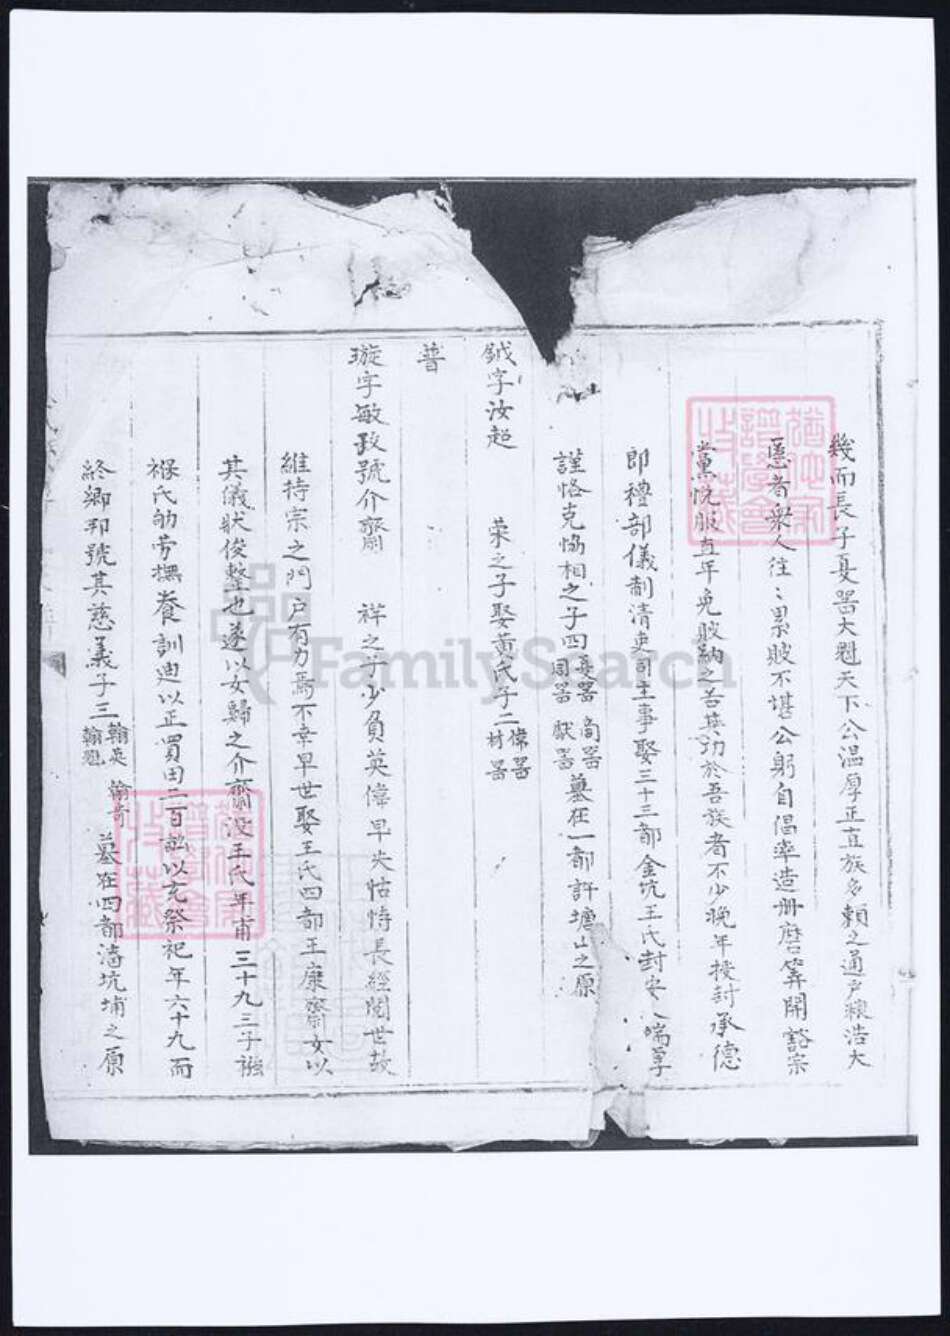 幾而長子夏器大魁天下公溫厚正直族多賴之通戶糧浩大
慝者衆人往〻累賠不堪公躬自倡率造册磨筭開豁宗
黨悅服直年免賠納之苦其功於吾族者不少晚年授封承德
郎禮部儀制清吏司主事娶三十三都金坑王氏封安人端享
謹恪克恊相之子四夏器 商器 周器 獻器 墓在一都許塘山之原
鉞字汝超 荣之子娶黄氏子二偉器 材器
普
璇字敏政號介齋 祥之子少負英偉早失怙恃長經閱世故
維持宗之門户有力焉不幸早世娶王氏四都王康齋女以
其儀狀俊整也遂以女歸之介齋没王氏年甫三十九三子襁
褓氏劬劳撫養訓迪以正買田二百畝以充祭祀年六十九而
終鄉邦號其慈義子三翰英 翰魁 翰奇 墓在四都濤坑埔之原
FamilySearch